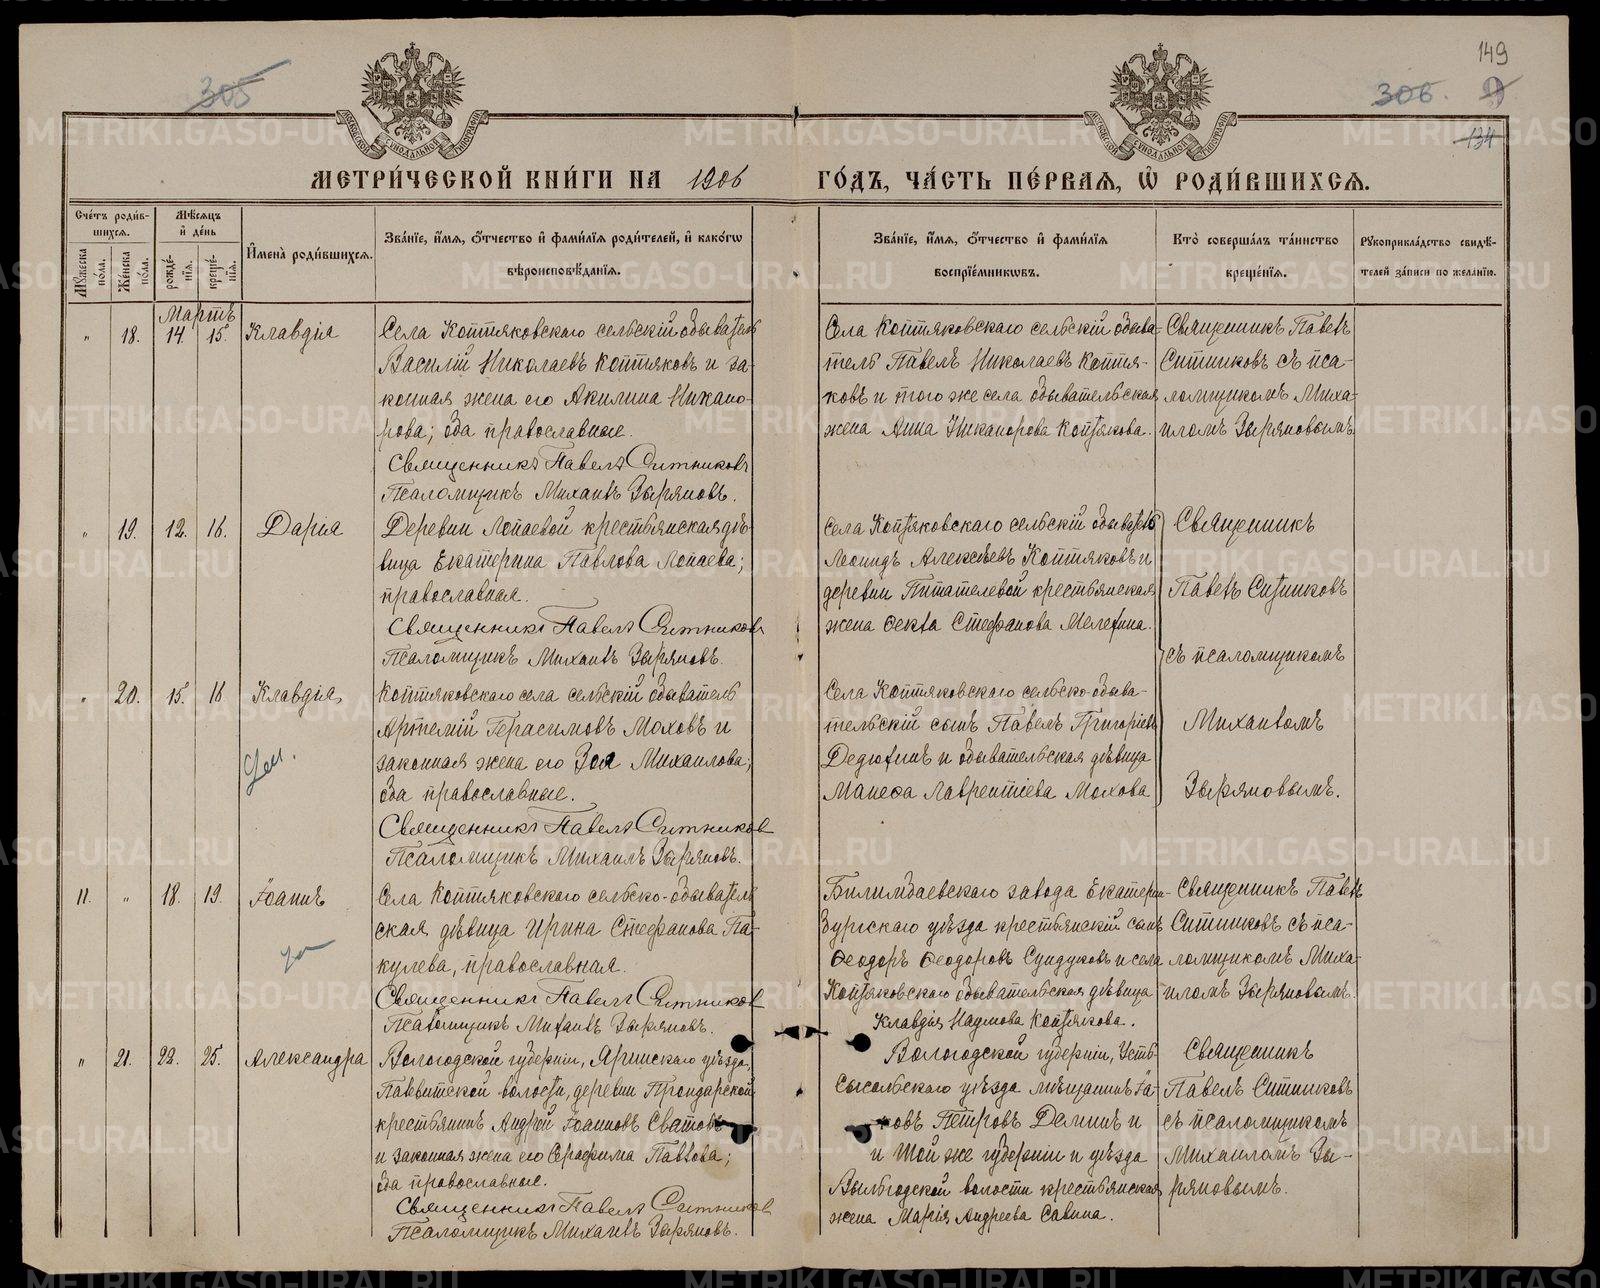 149
305
306.
134
МЕТРИ́ЧЕСКОЙ КНИ́ГИ НА 1906 ГО́ДЪ, ЧА́СТЬ ПЕ́РВАѦ, Ѽ РОДИ́ВШИХСѦ.
Сче́тъ роди́в-
шихсѧ.
Мꙋжеска по́ла.
Же́нска по́ла.
Мѣ́сѧцъ
и҆ де́нь
рожде́-
нїѧ.
креще́-
нїѧ.
И҆мена̀ роди́вшихсѧ.
Зва́нїе, и҆́мѧ, ѻ҆́тчество и҆ фами́лїѧ роди́телей, и҆ како́гѡ
вѣроисповѣ́данїѧ.
Зва́нїе, и҆́мѧ, ѻ҆́тчество и҆ фами́лїѧ
воспрїе́мникѡвъ.
Кто̀ соверша́лъ та́инство
креще́нїѧ.
Рꙋкоприкла́дство свидѣ́-
телей за́писи по жела́нїю.
Мартъ
" 18. 14. 15. Клавдія
Села Коптяковскаго сельскій обыватель
Василій Николаевъ Коптяковъ и за-
конная жена его Акилина Никано-
рова; оба православные.
Священникъ Павелъ Ситниковъ
Псаломщикъ Михаилъ Зыряновъ.
Села Коптяковскаго сельскій обыва-
тель Павелъ Николаевъ Коптя-
ковъ и того же села обывательская
жена Анна Никанорова Коптякова.
Священникъ Павелъ
Ситниковъ съ пса-
ломщикомъ Миха-
иломъ Зыряновымъ.
" 19. 12. 16. Дарія
Деревни Лопаевой крестьянская дѣ-
вица Екатерина Павлова Лопаева;
православная.
Священникъ Павелъ Ситниковъ
Псаломщикъ Михаилъ Зыряновъ.
Села Коптяковскаго сельскій обыватель
Леонидъ Алексѣевъ Коптяковъ и
деревни Питателевой крестьянская
жена Ѳекла Стефанова Мелехина.
Священникъ
Павелъ Ситниковъ
съ псаломщикомъ
Михаиломъ
Зыряновымъ.
" 20. 15. 16 Клавдія
Коптяковскаго села сельскій обыватель
Артемій Герасимовъ Моховъ и
законная жена его Зоя Михаилова;
оба православные.
Священникъ Павелъ Ситников
Псаломщикъ Михаилъ Зыряновъ.
Села Коптяковскаго сельско-обыва-
тельскій сынъ Павелъ Григоріевъ
Дедюхинъ и обывательская дѣвица
Манефа Лаврентіева Мохова
Ум.
11. " 18. 19. Іоаннъ
Села Коптяковскаго сельско-обыватель
ская дѣвица Ирина Стефанова Па-
кулева, православная.
Священникъ Павелъ Ситников
Псаломщикъ Михаилъ Зыряновъ.
Билимбаевскаго завода Екатерин-
бургскаго уѣзда крестьянскій сынъ
Ѳеодоръ Ѳеодоровъ Сундуковъ и села
Коптяковскаго обывательская дѣвица
Клавдія Наумова Коптякова.
Священникъ Павелъ
Ситниковъ съ пса-
ломщикомъ Миха-
иломъ Зыряновымъ.
" 21. 22. 25. Александра
Вологодской губерніи, Яринскаго уѣзда,
волости, деревни
крестьянинъ Андрей Іоанновъ Сватовъ
и законная жена его Серафима Павлова;
оба православные.
Священникъ Павелъ Ситников
Псаломщикъ Михаилъ Зыряновъ.
Вологодской губерніи, Усть-
Сысольскаго уѣзда мѣщанинъ Іа-
ковъ Петровъ Делинъ и
и той же губерніи и уѣзда
Выльгодской волости крестьянская
жена Марія Андреева Савина.
Священникъ
Павелъ Ситниковъ
съ псаломщикомъ
Михаиломъ Зы-
ряновымъ.
METRIKI.GASO-URAL.RU